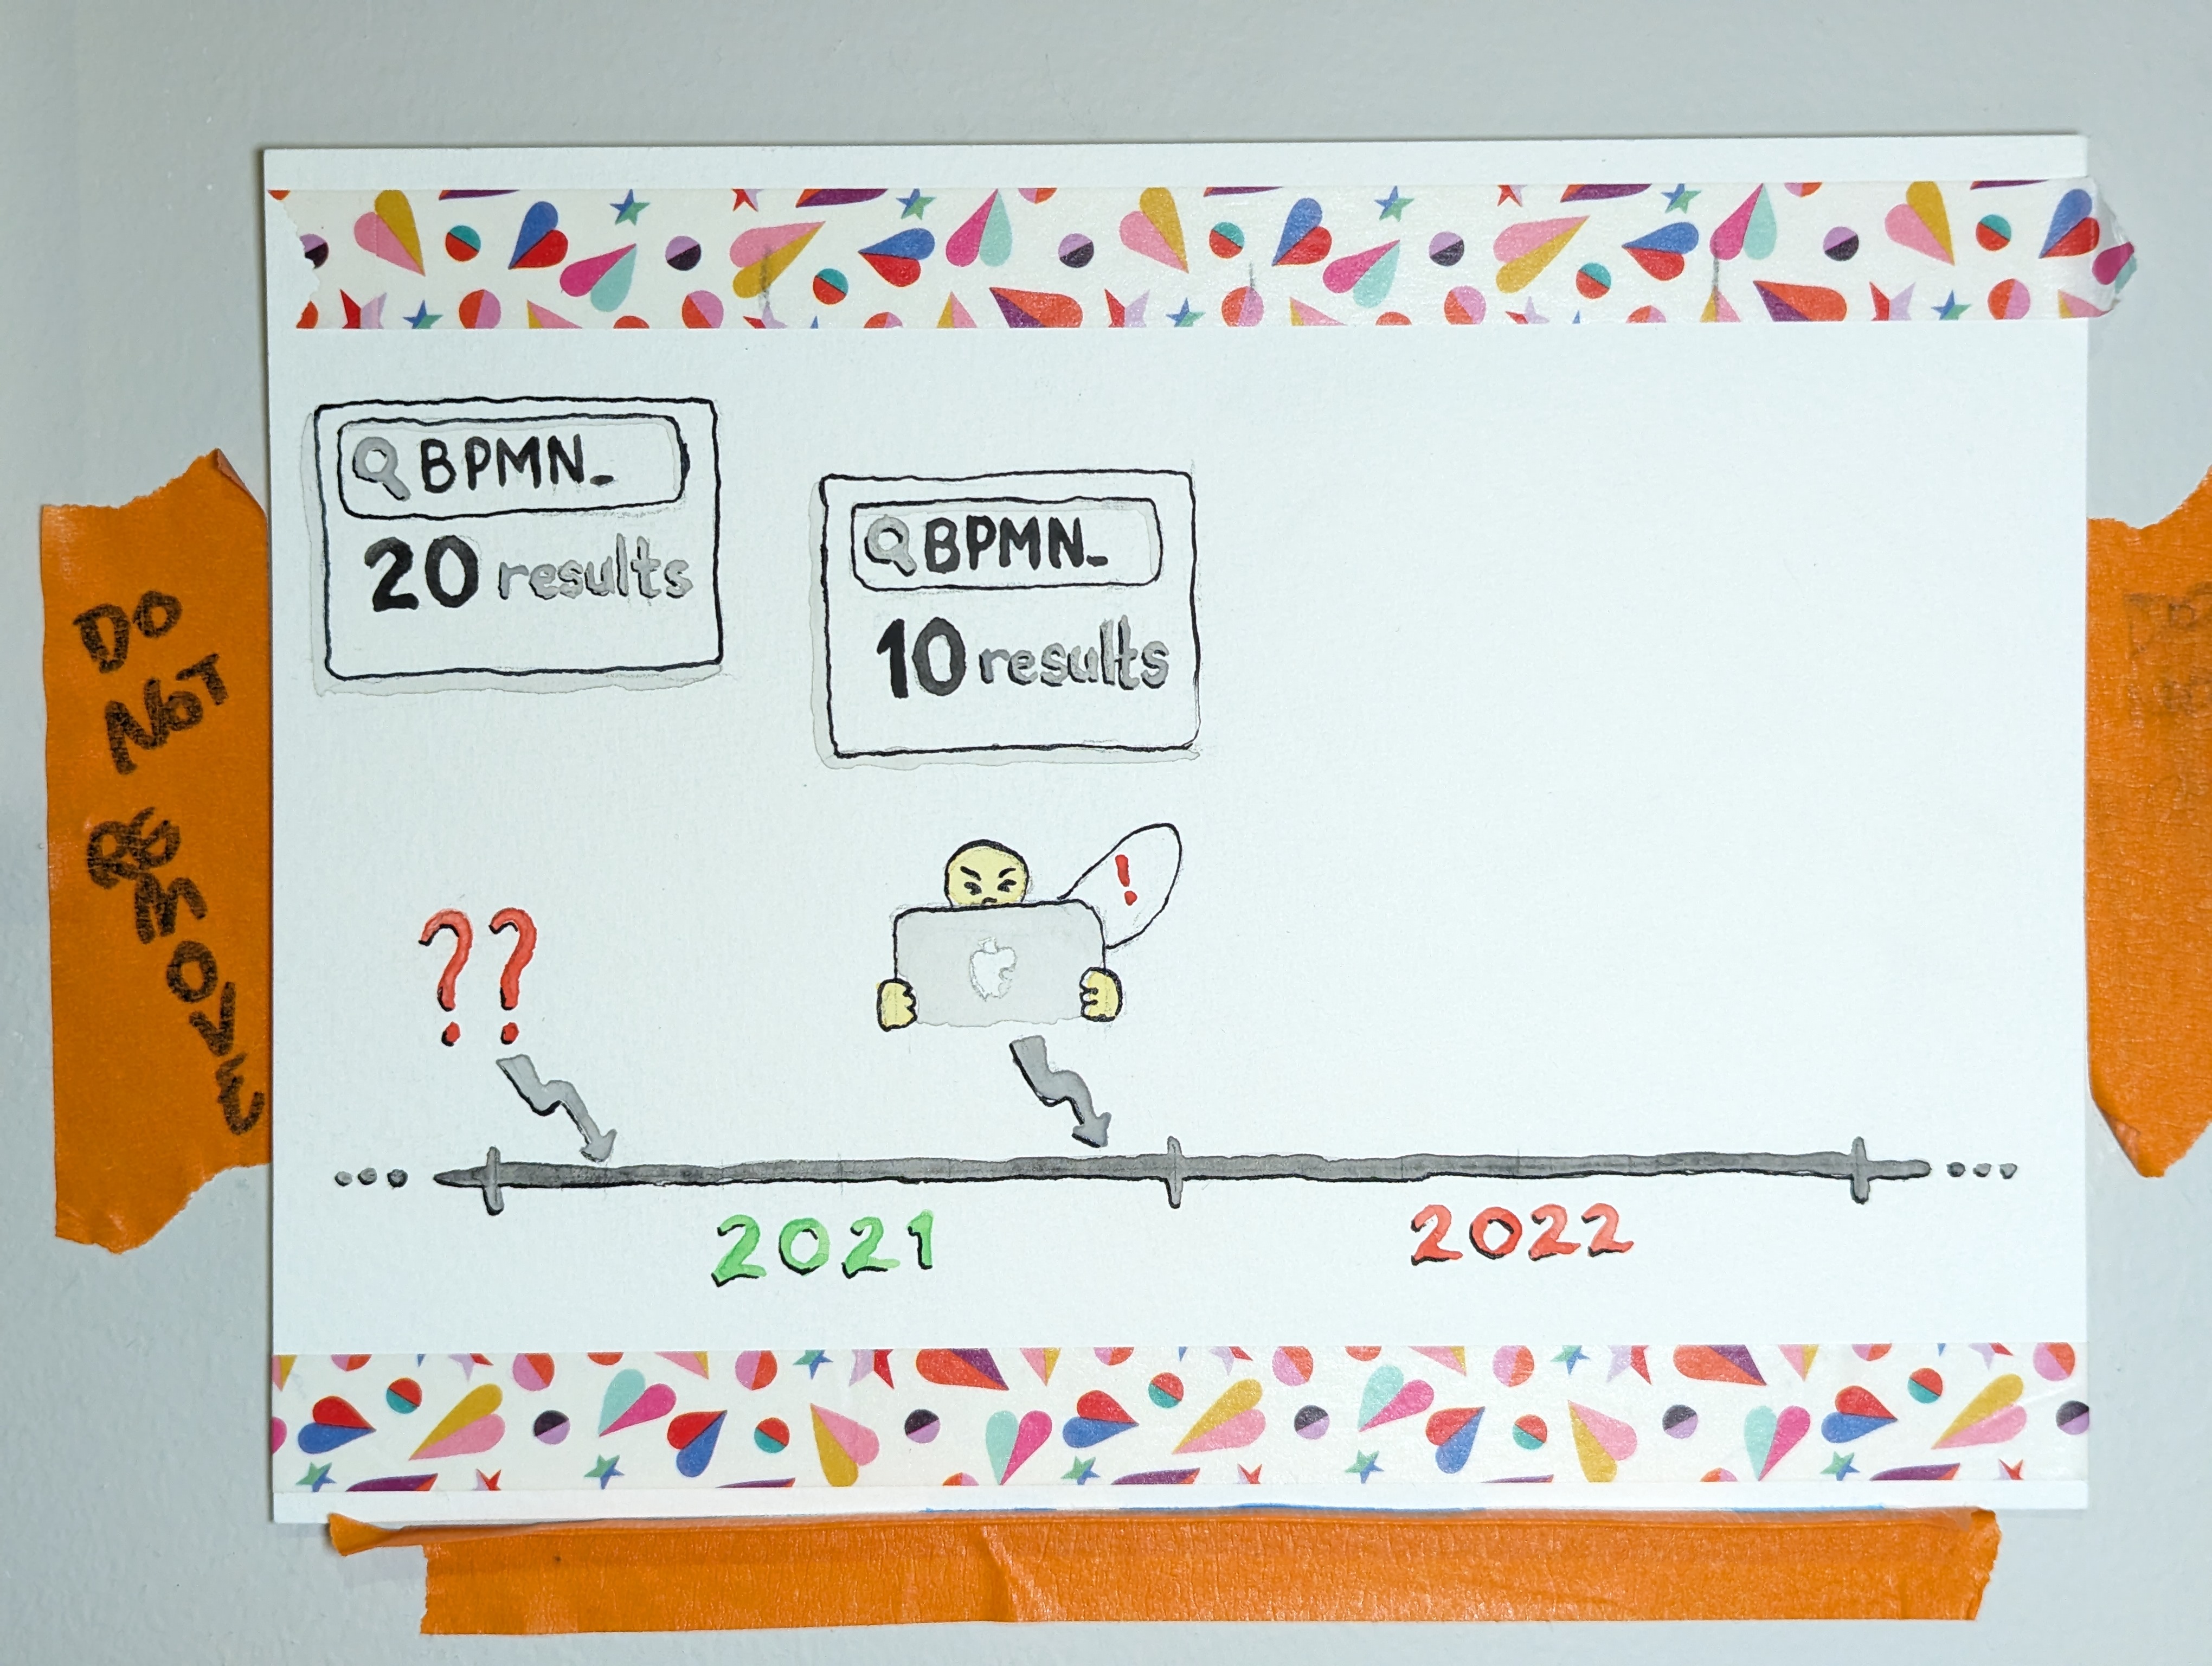 DO
NOT
REMOVE
BPMN_
20 results
BPMN_
10 results
??
!
...
2021
2022
...